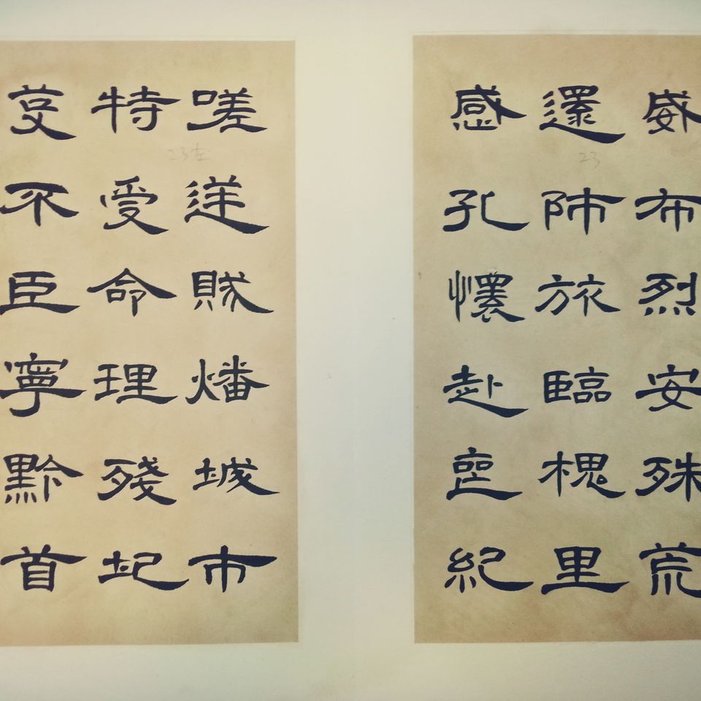 威布烈安殊荒
還師旅臨槐里
感孔懷赴喪紀
嗟逆賊燔城市
特受命理殘圮
芟不臣寧黔首
23
23左